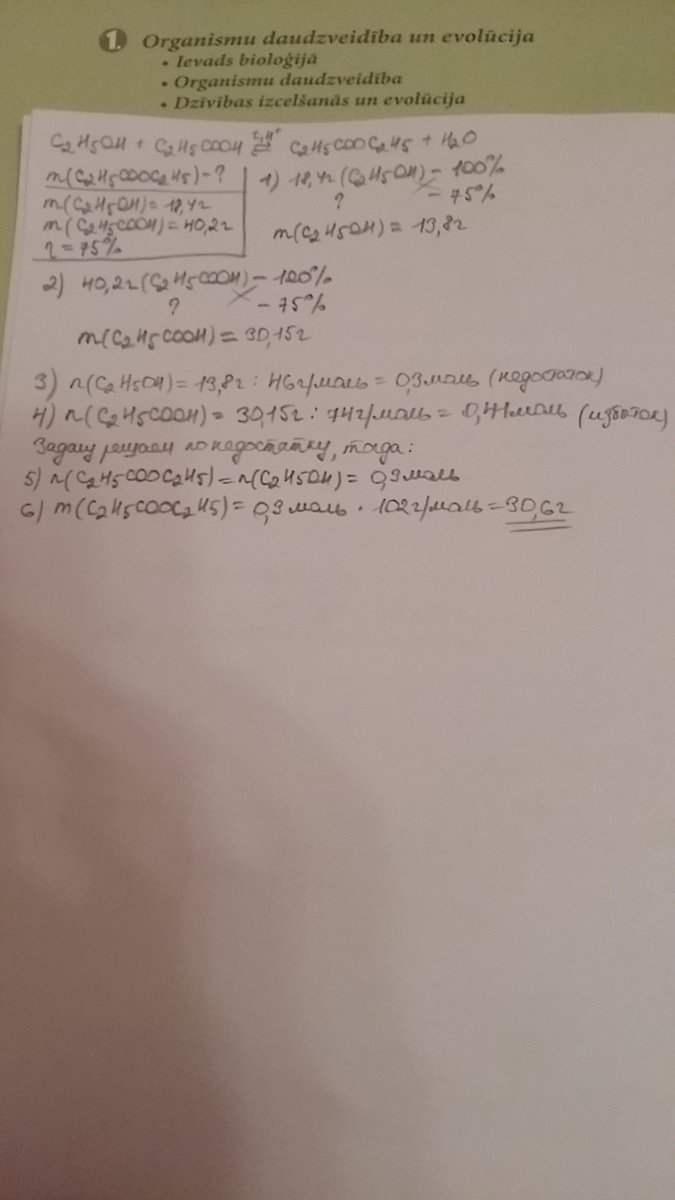 1. Organismu daudzveidība un evolūcija
• Ievads bioloģijā
• Organismu daudzveidība
• Dzīvības izcelšanās un evolūcija
C2H5OH + C2H5COOH ⇄ C2H5COOC2H5 + H2O
t, H+
m(C2H5COOC2H5) - ?
m(C2H5OH) = 18,4г
m(C2H5COOH) = 40,2г
η = 75%
1) 18,4г (C2H5OH) - 100%
? - 75%
m(C2H5OH) = 13,8г
2) 40,2г (C2H5COOH) - 100%
? - 75%
m(C2H5COOH) = 30,15г
3) n(C2H5OH) = 13,8г : 46г/моль = 0,3моль (недостаток)
4) n(C2H5COOH) = 30,15г : 74г/моль = 0,41моль (избыток)
Задачу решаем по недостатку, тогда:
5) n(C2H5COOC2H5) = n(C2H5OH) = 0,3моль
6) m(C2H5COOC2H5) = 0,3моль · 102г/моль = 30,6г